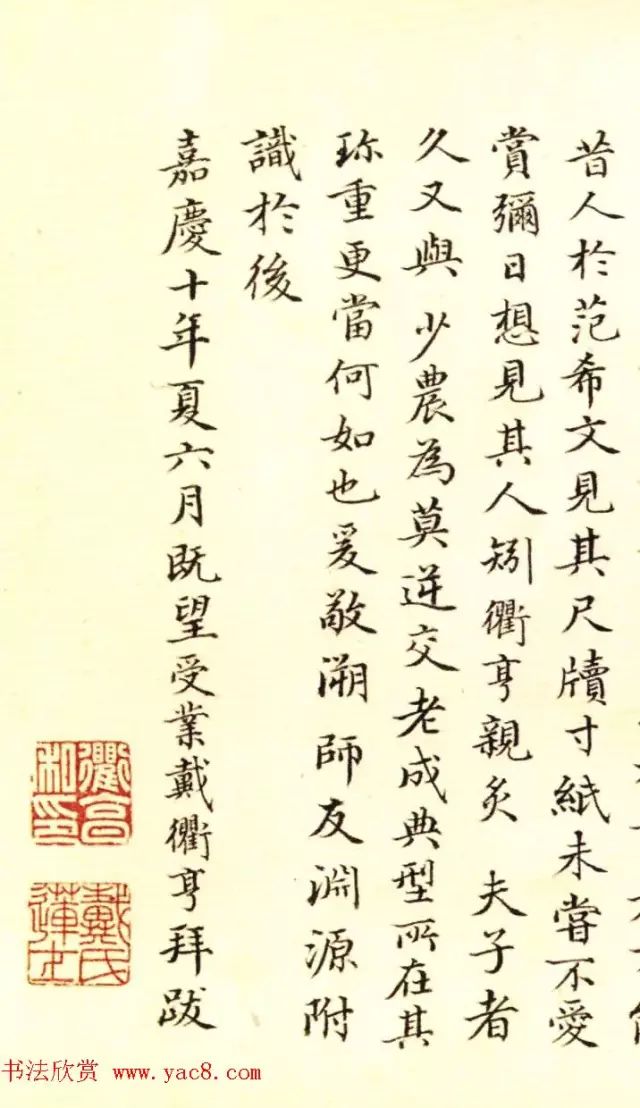 昔人於范希文見其尺牘寸紙未嘗不愛
賞彌日想見其人矧衢亨親炙 夫子者
久又與 少農為莫逆交老成典型所在其
珎重更當何如也爰敬溯 師友淵源附
識於後
嘉慶十年夏六月既望受業戴衢亨拜跋
衢亨私印
戴氏蓮士
书法欣赏 www.yac8.com